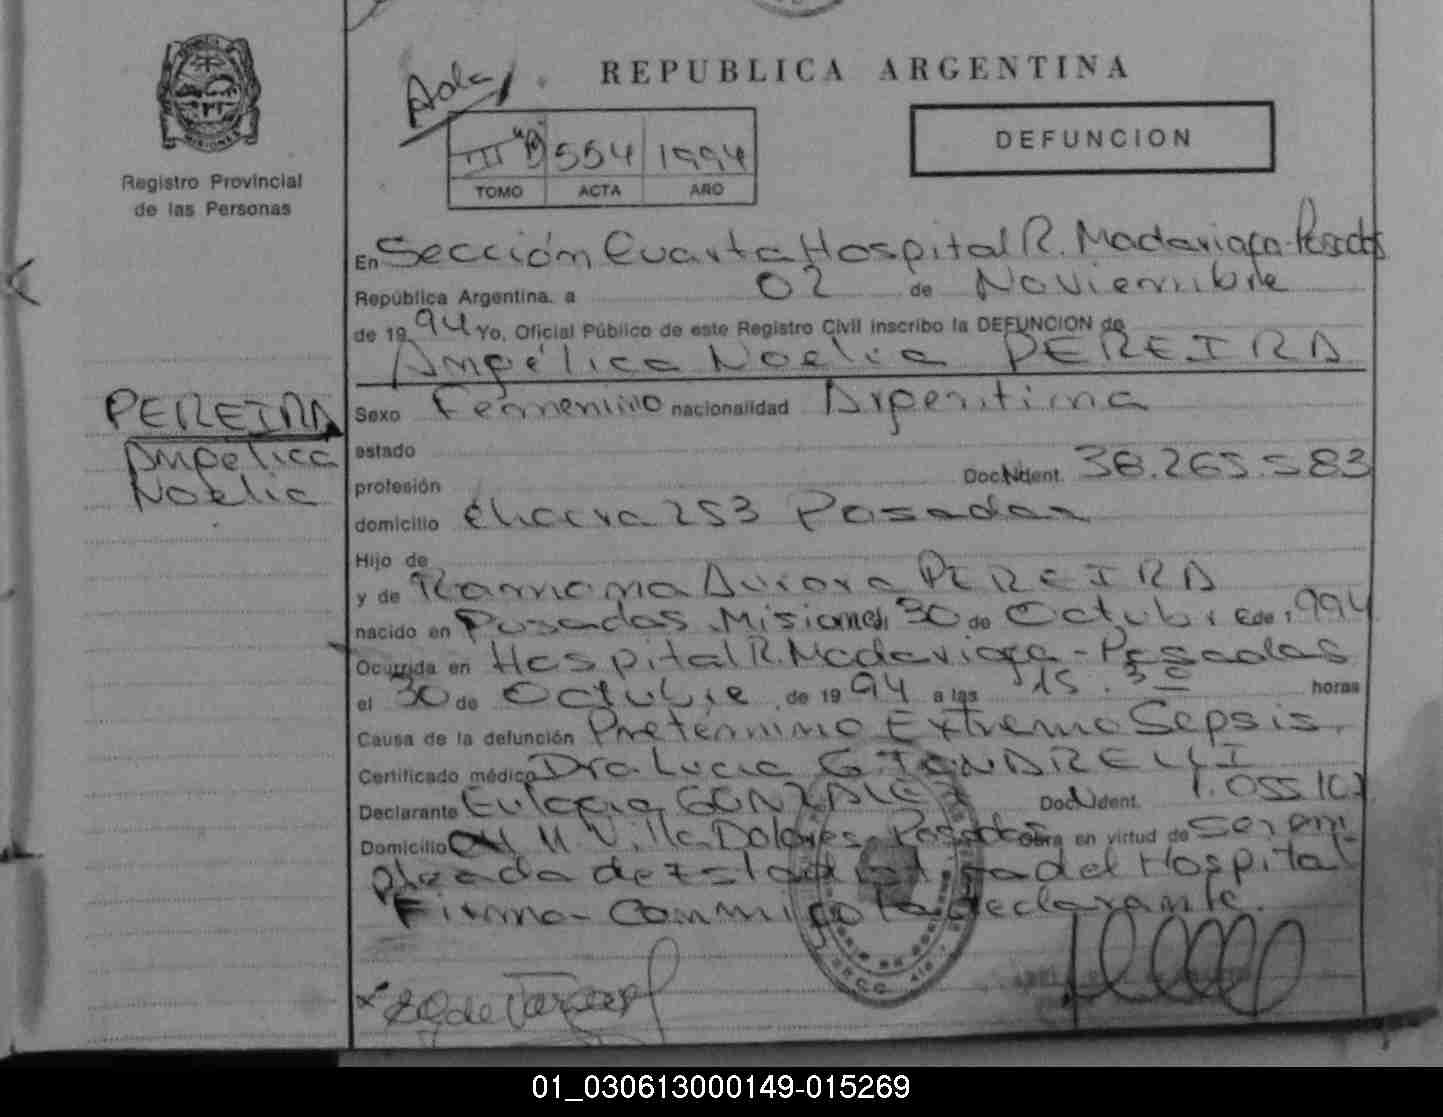 REPUBLICA ARGENTINA
DEFUNCION
III "B" 554 1994
TOMO ACTA AÑO
MISIONES
Registro Provincial
de las Personas
En Sección Cuarta Hospital R. Madariaga - Posadas
República Argentina, a 02 de Noviembre
de 1994 Yo, Oficial Público de este Registro Civil inscribo la DEFUNCION de
Angélica Noelia PEREIRA
PEREIRA
Angelica
Noelia
Sexo Femenino nacionalidad Argentina
estado
profesión Doc. Ident. 38.265.583
domicilio Chacra 253 Posadas
Hijo de
y de Ramona Aurora PEREIRA
nacido en Posadas, Misiones, 30 de Octubre de 1994
Ocurrida en Hospital R. Madariaga - Posadas
el 30 de Octubre de 1994 a las 15.30 horas
Causa de la defunción Pretérmino Extremo Sepsis.
Certificado médico Dra Lucia
Declarante Eulogia GONZALEZ Doc. Ident. 1.055.107
Domicilio Villa Dolores Posadas Obra en virtud de ser em
pleada de Estadística del Hospital
Firma Conmigo la declarante.
01_030613000149-015269